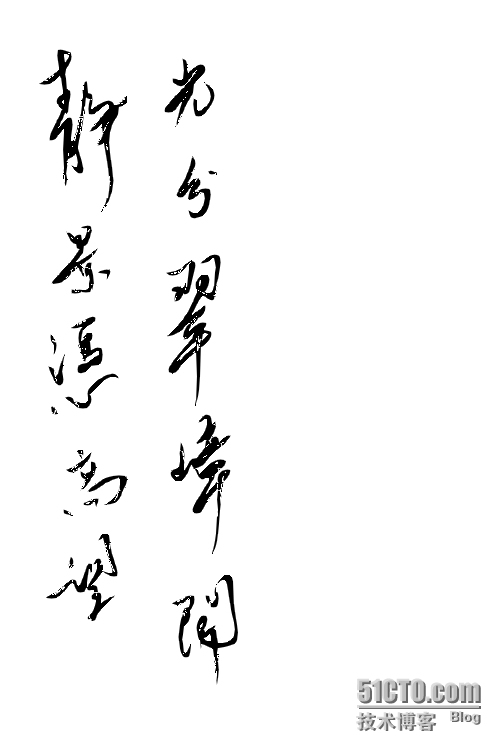 光分翠嶂開
静景憑高望
51CTO.com
技术博客 Blog